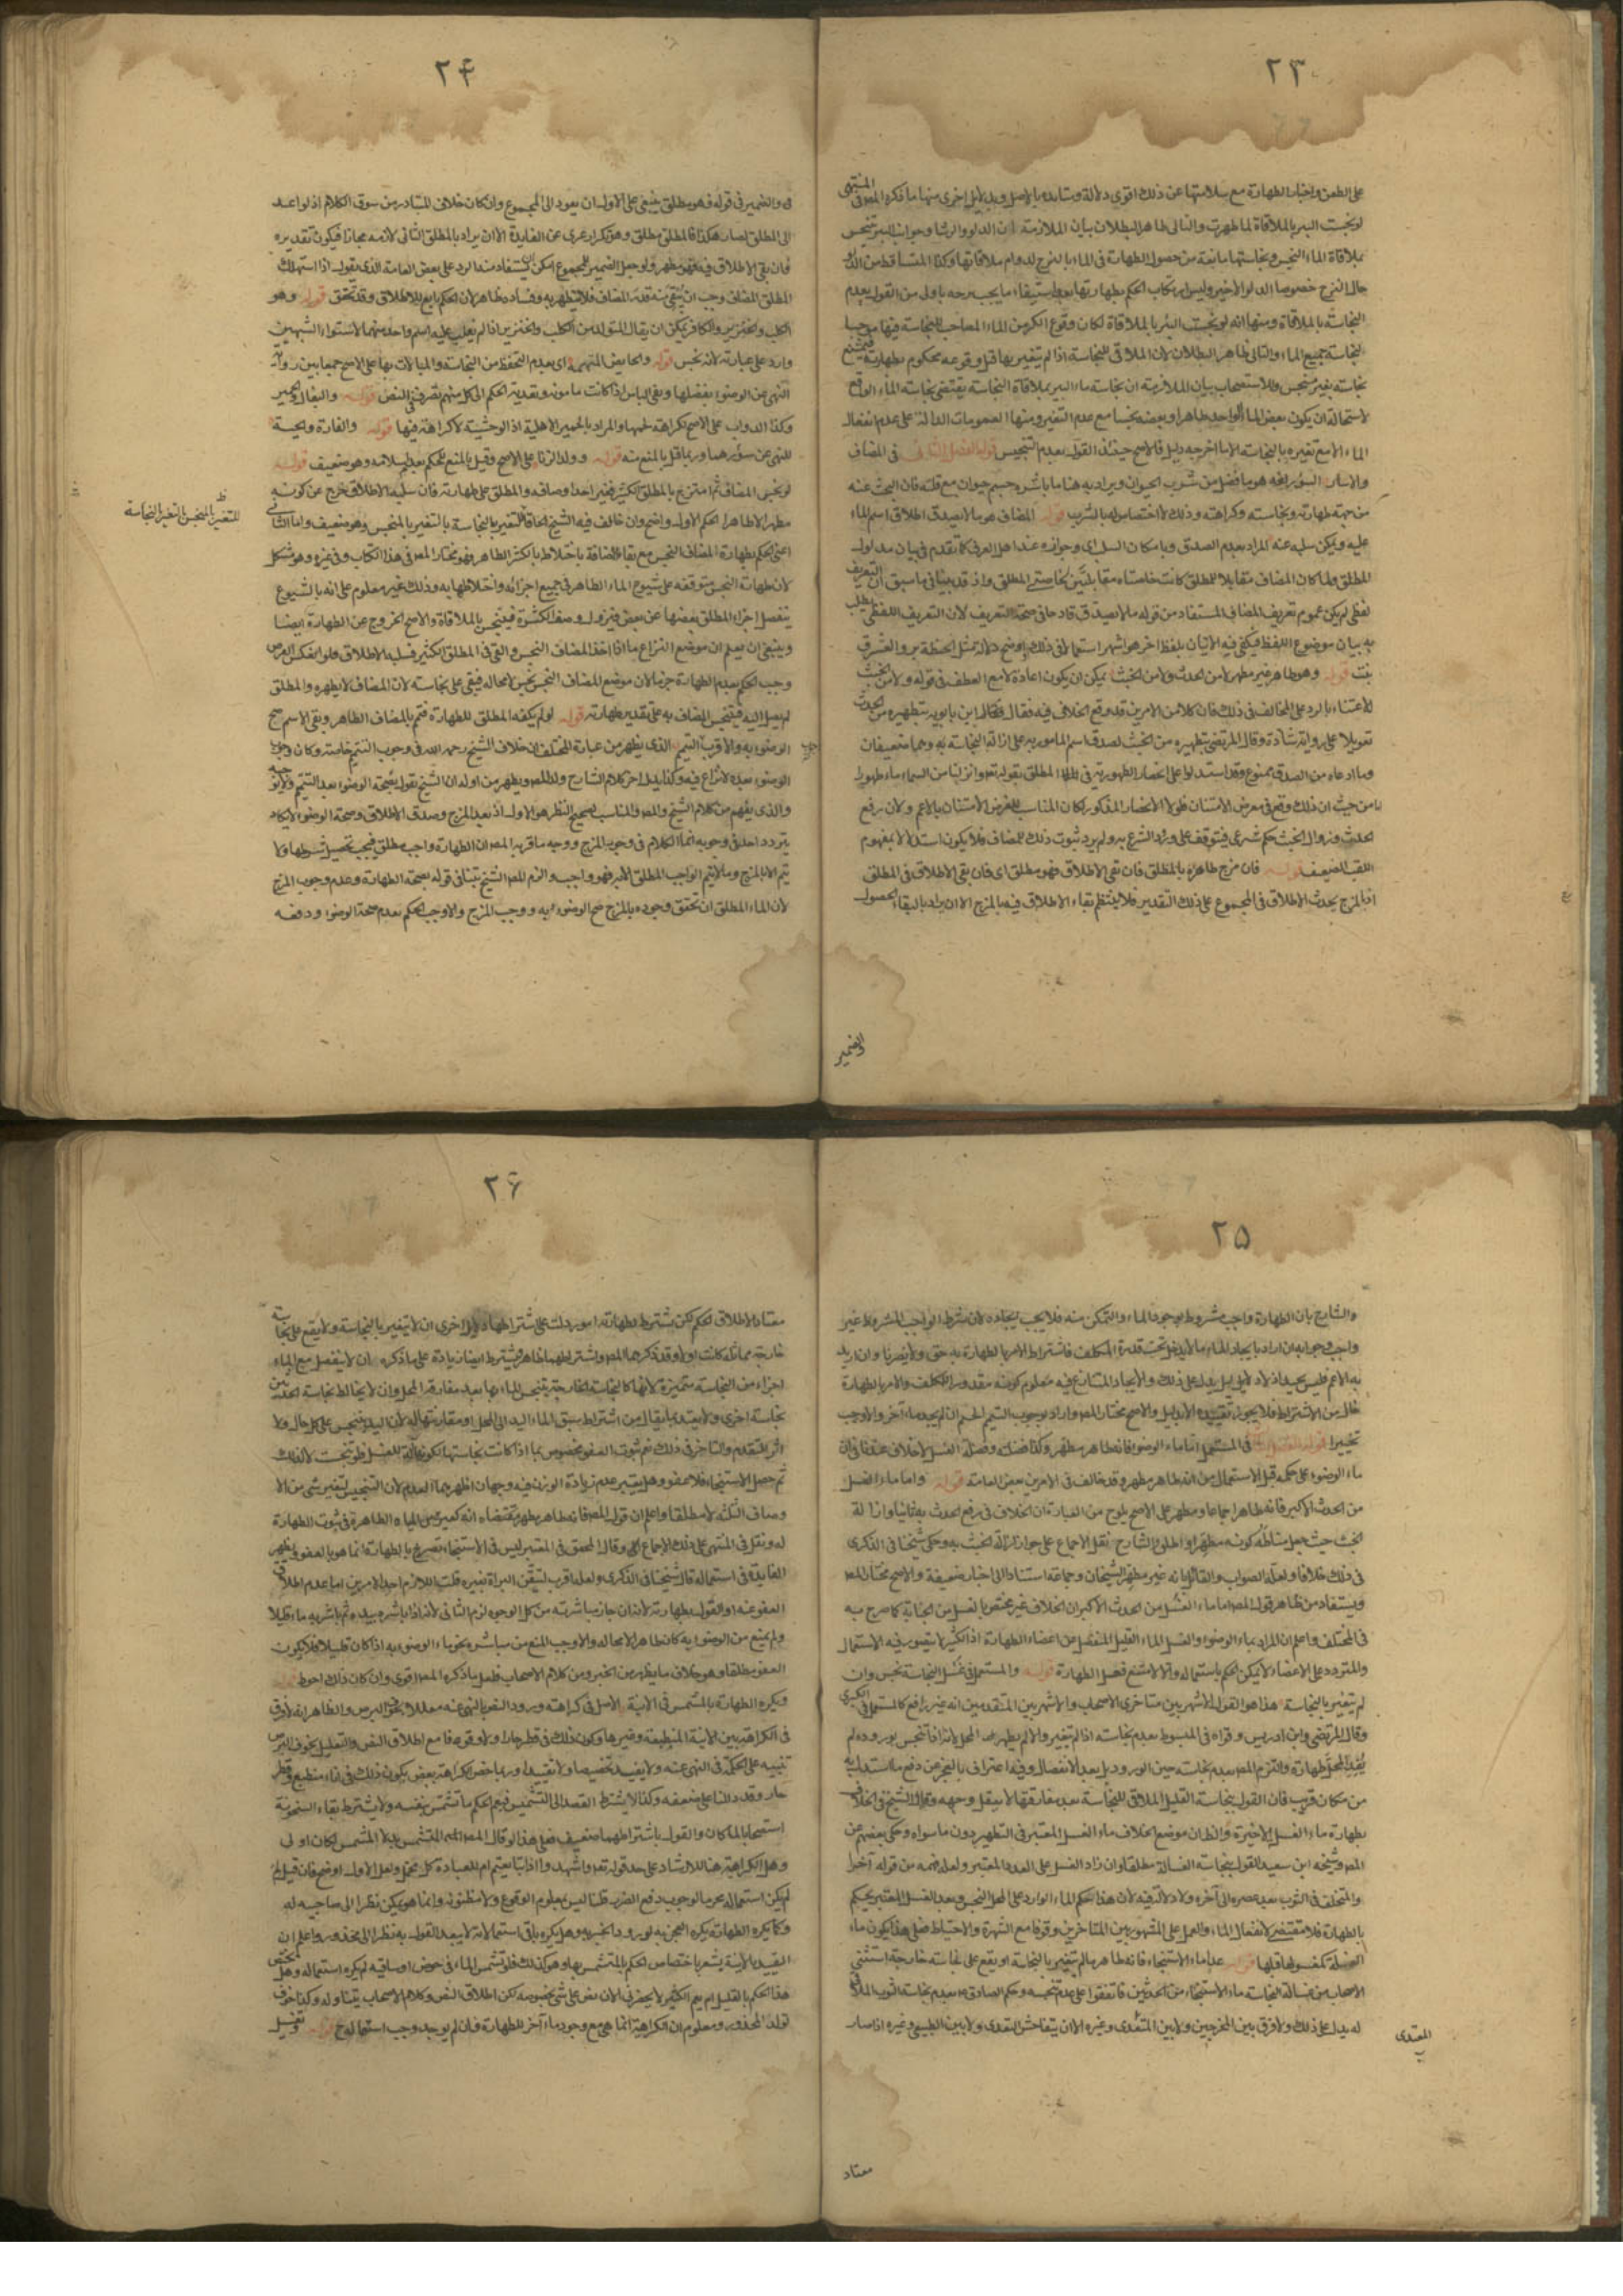 ٢٣
على الطعن واخبار الطهارة مع سلامتها عن ذلك اقوى دلالة ومتايده بالاصل وبدلايل اخرى منها ما ذكره المص في المنتهى
لو نجست البئر بالملاقاة لما طهرت والتالى ظاهر البطلان بيان الملازمة ان الدلو والرشا وجوانب البئر تنجس
بملاقاة الماء النجس ونجاستها مانعة من حصول الطهارة فى الماء بالنزح لدوام ملاقاتها وكذا المتساقط من الدلو
حال النزح خصوصا الدلو الاخير وليس ارتكاب الحكم بطهارتها بعد استيفاء ما يجب نزحه باولى من القول بعدم
النجاسة بالملاقاة ومنها انه لو نجست البئر بالملاقاة لكان وقوع الكر من الماء المصاحب للنجاسة فيها موجبا
لنجاسة جميع الماء والتالى ظاهر البطلان لان الملاقى للنجاسة اذا لم يتغير بها قبل وقوعه محكوم بطهارته فيمتنع
نجاسته بغير منجس وللاستصحاب بيان الملازمة ان نجاسة ماء البئر بملاقاة النجاسة يقتضى نجاسة الماء الواقع
لاستحالة ان يكون بعض الماء الواحد طاهرا وبعضه نجسا مع عدم التغير ومنها العمومات الدالة على عدم انفعال
الماء الا مع تغيره بالنجاسة الا ما اخرجه دليل فالاصح حينئذ القول بعدم التنجيس قوله الفصل الثانى فى المضاف
والاسار السؤر لغة هو ما فضل من شرب الحيوان ويراد به هنا ما باشره جسم حيوان مع قلته فان البحث عنه
من جهة طهارته ونجاسته وكراهته وذلك لا اختصاص له بالشرب قوله المضاف هو ما لا يصدق اطلاق اسم الماء
عليه ويمكن سلبه عنه المراد بعدم الصدق وبامكان السلب اى وجوازه عند اهل العرف كما تقدم فى بيان مدلول
المطلق ولما كان المضاف مقابلا للمطلق كانت خاصتاه مقابلتين لخاصتى المطلق واذ قد بينا فى ما سبق ان التعريف
لفظى لم يكن عموم تعريف المضاف المستفاد من قوله ما لا يصدق قادحا فى صحة التعريف لان التعريف اللفظى يطلب
به بيان موضوع اللفظ فيكفى فيه الاتيان بلفظ اخر هو اشهر استعمالا فى ذلك واوضح دلالة كمثل الحنطة بر والشرق
نبت قوله وهو طاهر غير مطهر لا من الحدث ولا من الخبث يمكن ان يكون اعادة لا مع العطف فى قوله ولا من الخبث
للاعتناء بالرد على المخالف فى ذلك فان كلا من الامرين قد وقع الخلاف فيه فقال ابن بابويه بتطهيره من الحدث
تعويلا على رواية شاذة وقال المرتضى بتطهيره من الخبث لصدق اسم المامور به على ازالة النجاسة به وهما ضعيفان
وما ادعاه من الصدق ممنوع وقد استدلوا على انحصار الطهورية فى الماء المطلق بقوله تعالى وانزلنا من السماء ماء طهورا
من حيث ان ذلك وقع فى معرض الامتنان فلولا الانحصار المذكور لكان المناسب للغرض الامتنان بالاعم ولان رفع
الحدث وزوال الخبث حكم شرعى فيتوقف على وراد الشرع به ولم يرد ثبوت ذلك للمضاف فلا يكون استدلالا بمفهوم
اللقب الضعيف قوله فان مزج طاهره بالمطلق فان بقى الاطلاق فهو مطلق اى فان بقى الاطلاق فى المطلق
اذ المزج يحدث الاطلاق فى المجموع على ذلك التقدير فلا ينتظم بقاء الاطلاق فيه بالمزج الا ان يراد بالبقاء الحصول
والضمير
٢۴
فيه والضمير فى قوله فهو مطلق ينبغى على الاول ان يعود الى المجموع وان كان خلاف المتبادر من سوق الكلام اذ لو اعيد
الى المطلق لصار هكذا فالمطلق مطلق وهو تكرار عرى عن الفايدة الا ان يراد بالمطلق الثانى لازمه مجازا فيكون تقديره
فان بقى الاطلاق فيه فهو مطهر ولو جعل الضمير للمجموع امكن ان يستفاد منه الرد على بعض العامة الذى يقول اذا استهلك
المطلق المضاف وجب ان يبقى منه قدر المضاف فلا يتطهر به وفساده ظاهر لان الحكم تابع للاطلاق وقد تحقق قوله وهو
الكلب والخنزير والكافر يمكن ان يقال المتولد من الكلب والخنزير اذا لم يغلب عليه اسم واحد منهما لاستواء الشبهين
وارد على عبارته لانه نجس قوله والحايض المتهمة اى بعدم التحفظ من النجاسة والمبالات بها على الاصح جمعا بين رواية
النهى عن الوضوء بفضلها ونفى الباس اذا كانت مامونة وتعدية الحكم الى كل متهم تصرف فى النص قوله والبغال والحمير
وكذا الدواب على الاصح لكراهة لحمها والمراد بالحمير الاهلية اذ الوحشية لا كراهة فيها قوله والفارة والحية
للنهى عن سؤرهما وربما قيل بالمنع منه قوله وولد الزنا على الاصح وقيل بالمنع للحكم بعدم اسلامه وهو ضعيف قوله
لو نجس المضاف ثم امتزج بالمطلق الكثير فغير احد اوصافه والمطلق على طهارته فان سلبه الاطلاق خرج عن كونه
مطهرا لا طاهرا الحكم الاول واضح وان خالف فيه الشيخ الحاقا للتغير بالنجاسة بالتغير بالمتنجس وهو ضعيف واما الثانى
للتغير بالمتنجس بالتغير بالنجاسة
اعنى الحكم بطهارة المضاف النجس مع بقاء الاضافة باختلاطه بالكثير الطاهر فهو مختار المص فى هذا الكتاب وفى غيره وهو مشكل
لان طهارة النجس متوقفة على شيوع الماء الطاهر فى جميع اجزائه واختلاطها به وذلك غير معلوم على انه بالشيوع
ينفصل اجزاء المطلق بعضها عن بعض فيزول وصف الكثرة فينجس بالملاقاة والاصح الخروج عن الطهارة ايضا
وينبغى ان يعلم ان موضع النزاع ما اذا اخذ المضاف النجس والقى فى المطلق الكثير فسلبه الاطلاق فلو انعكس الفرض
وجب الحكم بعدم الطهارة جزما لان موضع المضاف النجس نجس لا محالة فيبقى على نجاسته لان المضاف لا يطهره والمطلق
لم يصل اليه فينجس المضاف به على تقدير طهارته قوله لو لم يكفه المطلق للطهارة فتمم بالمضاف الطاهر وبقى الاسم صح
الوضوء به والاقرب التيمم الذى يظهر من عبارة المختلف ان خلاف الشيخ رحمه الله فى وجوب التيمم خاصة وكان وجوب
الوضوء بعده لا نزاع فيه وكذا يدل اخر كلام الشارح ولد المص ويظهر من اوله ان الشيخ يقول بصحة الوضوء بعد التتميم
والذى يفهم من كلام الشيخ والمص والمناسب لصحيح النظر هو الاول اذ بعد المزج وصدق الاطلاق وصحة الوضوء لا يكاد
يتردد احد فى وجوبه انما الكلام فى وجوب المزج ووجه ما قربه المص ان الطهارة واجب مطلق فيجب تحصيل شرطها ولا
يتم الا بالمزج وما لا يتم الواجب المطلق الا به فهو واجب والزم المص الشيخ بتنافى قوله بصحة الطهارة وعدم وجوب المزج
لان الماء المطلق ان تحقق وجوده بالمزج صح الوضوء به ووجب المزج والا وجب الحكم بعدم صحة الوضوء ودفعه
٢۵
الشارح بان الطهارة واجب مشروط بوجود الماء والتمكن منه فلا يجب ايجاده لان شرط الواجب المشروط غير
واجب وجوابه ان اراد بايجاد الماء ما لا يدخل تحت قدرة المكلف فاشتراط الامر بالطهارة به حق ولا يضرنا وان اريد
به الاعم فليس بجيد اذ لا دليل يدل على ذلك والايجاد المتنازع فيه معلوم كونه مقدورا للمكلف والامر بالطهارة
خال من الاشتراط فلا يجوز تقييده الا بدليل والاصح مختار المص واراد بوجوب التيمم الحتم ان لم يجد ماء آخر والا وجب
تخييرا قوله الفصل الثالث فى المستعمل اما ماء الوضوء فانه طاهر مطهر وكذا فضلته وفضلة الغسل لا خلاف عندنا فى ان
ماء الوضوء على حكمه قبل الاستعمال من انه طاهر مطهر وقد خالف فى الامرين بعض العامة قوله واما ماء الغسل
من الحدث الاكبر فانه طاهر اجماعا ومطهر على الاصح يلوح من العبارة ان الخلاف فى رفع الحدث به ثانيا وازالة
الخبث حيث جعل مناطه كونه مطهرا واطلق والشارح نقل الاجماع على جواز ازالة الخبث به وحكى شيخنا فى الذكرى
فى ذلك خلافا ولعله الصواب والقائل بانه غير مطهر الشيخان وجماعة استنادا الى اخبار ضعيفة والاصح مختار المص
ويستفاد من ظاهر قول المص اما ماء الغسل من الحدث الاكبر ان الخلاف غير مختص بالغسل من الجنابة كما صرح به
فى المختلف واعلم ان المراد بماء الوضوء والغسل الماء القليل المنفصل عن اعضاء الطهارة اذ الكثير لا يتصور فيه الاستعمال
والمتردد على الاعضاء لا يمكن الحكم باستعماله والا لامتنع فعل الطهارة قوله والمستعمل فى غسل النجاسة نجس وان
لم يتغير بالنجاسة هذا هو القول الاشهر بين متاخرى الاصحاب والاشهر بين المتقدمين انه غير رافع كالمستعمل فى الكبرى
وقال المرتضى وابن ادريس وقواه فى المبسوط بعدم نجاسته اذا لم يتغير والا لم يطهر المحل لانه اذا نجس بوروده لم
يفد المحل طهارة والتزم المص بعدم نجاسته حين الورود بل بعد الانفصال وفيه اعتراف بالعجز عن دفع ما استدل به
من مكان قريب فان القول بنجاسة القليل الملاقى للنجاسة بعد مفارقتها لا يعقل وجهه وقال الشيخ فى الخلاف
بطهارة ماء الغسل الاخيرة والظان موضع الخلاف ماء الغسل المعتبر فى التطهير دون ما سواه وحكى بعضهم عن
المص وشيخه ابن سعيد القول بنجاسة الغسالة مطلقا وان زاد الغسل على العدد المعتبر ولعله فهمه من قوله آخرا
والمتخلف فى الثوب بعد عصره الى آخره ولا دلالة فيه لان هذا حكم الماء الوارد على المحل النجس وبعد الغسل المعتبر يحكم
بالطهارة فلا مقتضى لانفعال الماء والعمل على المشهور بين المتاخرين وقوفا مع الشهرة والاحتياط فعلى هذا يكون ماء
الغسلة كمغسولها قبلها قوله عدا ماء الاستنجاء فانه طاهر ما لم يتغير بالنجاسة او يقع على نجاسة خارجة استثنى
الاصحاب من غسالة النجاسة ماء الاستنجاء من الحدثين فاتفقوا على عدم تنجسه وحكم الصادق ع بعدم نجاسة الثوب الملاقى
له يدل على ذلك ولا فرق بين المخرجين ولا بين المتعدى وغيره الا ان يتفاحش التعدى ولا بين الطبيعى وغيره اذا صار
المتعدى
معتاد
٢۶
معتادا لاطلاق الحكم لكن يشترط لطهارته امور دلت على اشتراطها دلايل اخرى ان لا يتغير بالنجاسة ولا يقع على نجاسة
خارجة مماثلة كانت او لا وقد ذكرهما المص واشتراطهما ظاهر ويشترط ايضا زيادة على ما ذكره ان لا ينفصل مع الماء
اجزاء من النجاسة متميزة لانها كالنجاسة الخارجة ينجس الماء بها بعد مفارقة المحل وان لا يخالط نجاسة الحدثين
نجاسة اخرى ولا يعتد بما يقال من اشتراط سبق الماء اليد الى المحل او مقارنتها له لان اليد تنجس على كل حال ولا
اثر للتقدم والتاخر فى ذلك نعم ثبوت العفو مخصوص بما اذا كانت نجاستها لكونها آلة للغسل فلو تنجست لا لذلك
ثم حصل الاستنجاء فلا عفو وهل يعتبر عدم زيادة الوزن فيه وجهان اظهرهما العدم لان التنجيس لتغير شئ من الاوصاف
الثلثة لا مطلقا واعلم ان قول المص فانه طاهر يظهر مقتضاه انه كغيره من المياه الطاهرة فى ثبوت الطهارة
له ونقل فى المنتهى على ذلك الاجماع وقال المحقق فى المعتبر ليس فى الاستنجاء تصريح بالطهارة انما هو بالعفو ويظهر
الفايدة فى استعماله قال شيخنا فى الذكرى ولعله اقرب لتيقن البراءة بغيره قلت اللازم احد الامرين اما عدم اطلاق
العفو عنه او القول بطهارته لانه ان جاز مباشرته من كل الوجوه لزم الثانى لانه اذا باشره بيده ثم باشر به ماء قليلا
ولم يمنع من الوضوء به كان طاهرا لا محالة والا وجب المنع من مباشرة نحو ماء الوضوء به اذا كان قليلا فلا يكون
العفو مطلقا وهو خلاف ما يظهر من الخبر ومن كلام الاصحاب فلعل ما ذكره المص اقوى وان كان ذلك احوط قوله
ويكره الطهارة بالمشمس فى الآنية الاصل فى كراهته ورود النص بالنهى عنه معللا بخوف البرص والظاهر انه لا فرق
فى الكراهة بين الآنية المنطبعة وغيرها وكون ذلك فى قطر حار او لا وقوفا مع اطلاق النص والتعليل بخوف البرص
تنبيه على الحكمة فى النهى عنه ولا يفيد تخصيصا ولا تقييدا وربما خص الكراهة بعض بكون ذلك فى اناء منطبع وقطر
حار وقد دللنا على ضعفه وكذا لا يشترط القصد الى التشميس فيعم الحكم ما تشمس بنفسه ولا يشترط بقاء السخونة
استصحابا لما كان والقول باشتراطهما ضعيف فعلى هذا لو قال المص المتشمس بدل المشمس لكان اولى
وهل الكراهة هنا للارشاد على حد قوله تعالى واشهدوا اذا تبايعتم ام للعبادة كل محتمل ولعل الاول اوضح فان قيل لم
لم يكن استعماله محرما لوجوب دفع الضرر قلنا ليس بمعلوم الوقوع ولا مظنونه وانما هو ممكن نظرا الى صاحبيه له
وكما يكره الطهارة به يكره العجن به لورود الخبر به وهل يكره باقى استعمالاته لا يبعد القول به نظرا الى المحذور واعلم ان
التقييد بالآنية يشعر باختصاص الحكم بالمتشمس بها وهو كذلك فلو تشمس الماء فى حوض او ساقية لم يكره استعماله وهل يختص
هذا الحكم بالقليل ام يعم الكثير لا يحضرنى الان نص على شئ بخصوصه لكن اطلاق النص وكلام الاصحاب يتناوله وكذا خوف
تولد المحذور ومعلوم ان الكراهة انما هى مع وجود ماء آخر للطهارة فان لم يوجد وجب استعماله ح قوله وتغسل